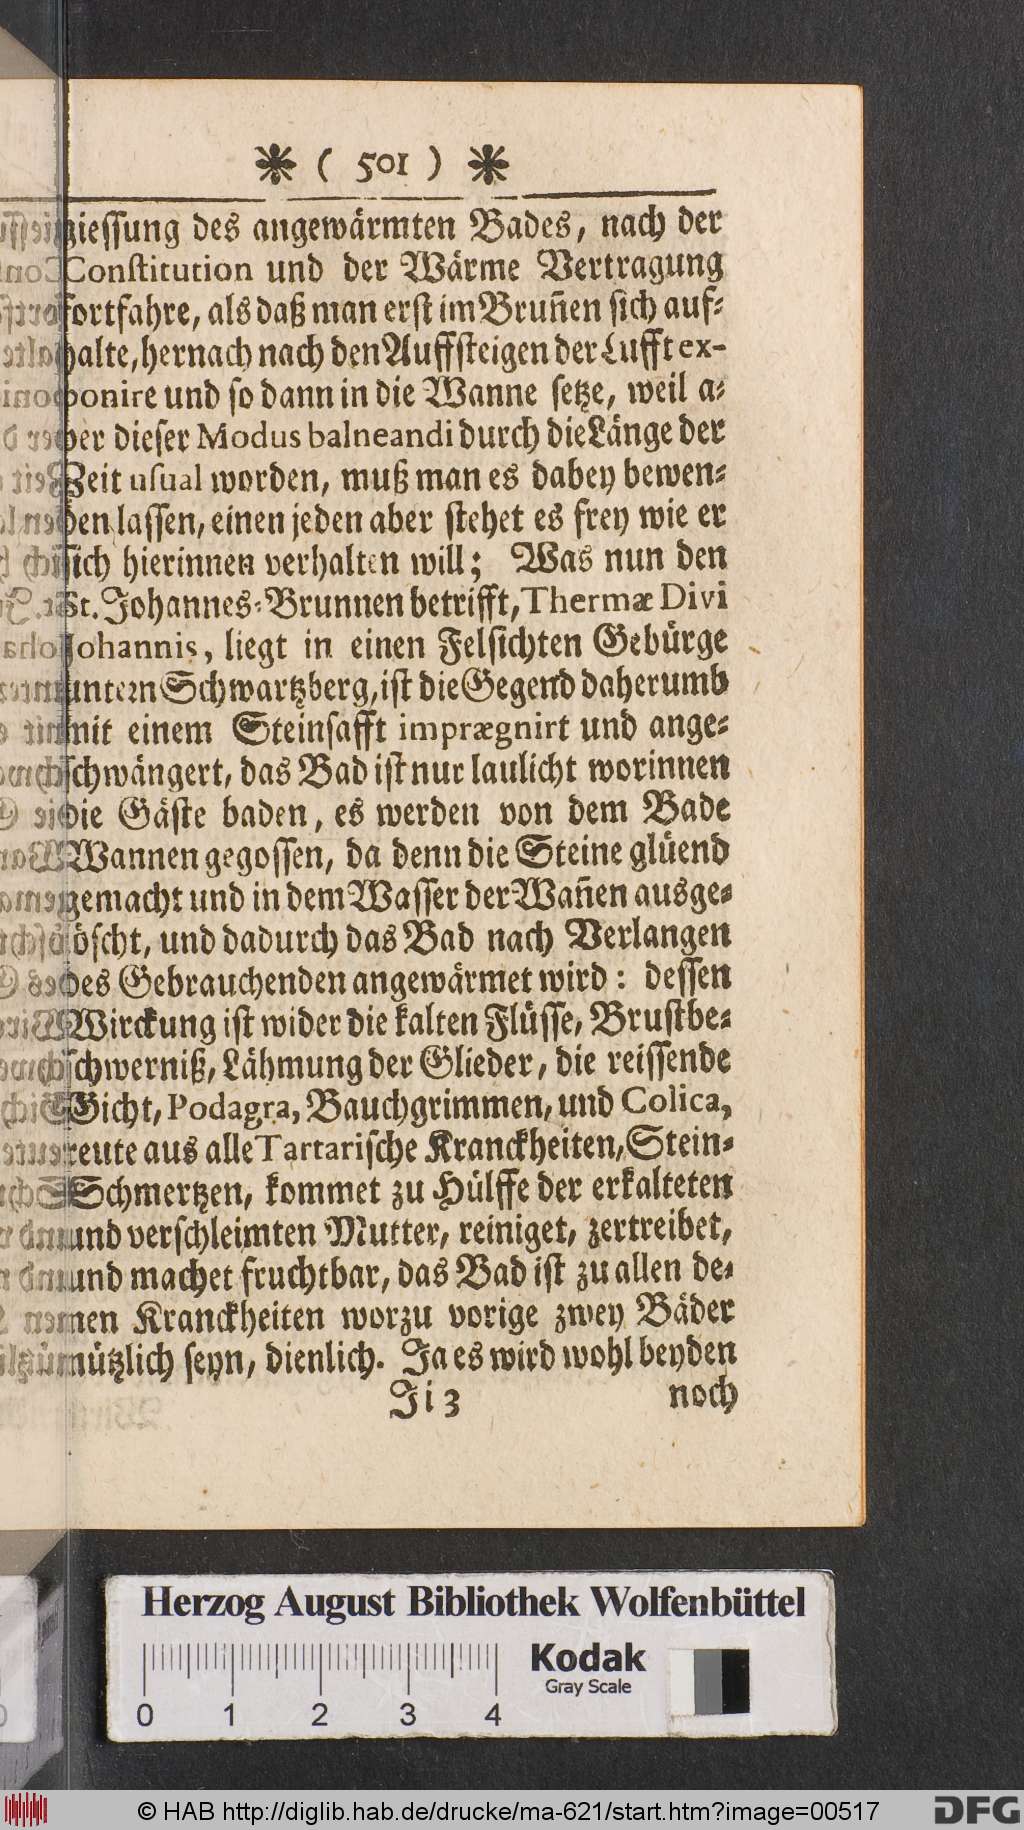 ❋ ( 501 ) ❋
giessung des angewärmten Bades, nach der
Constitution und der Wärme Vertragung
fortfahre, als daß man erst im Bruñen sich auf-
halte, hernach nach den Auffsteigen der Lufft ex-
ponire und so dann in die Wanne setze, weil a-
ber dieser Modus balneandi durch die Länge der
Zeit usual worden, muß man es dabey bewen-
den lassen, einen jeden aber stehet es frey wie er
sich hierinnen verhalten will; Was nun den
St. Johannes-Brunnen betrifft, Thermæ Divi
Johannis, liegt in einen Felsichten Gebürge
untern Schwartzberg, ist die Gegend daherumb
mit einem Steinsafft imprægnirt und ange-
schwängert, das Bad ist nur laulicht worinnen
die Gäste baden, es werden von dem Bade
Wannen gegossen, da denn die Steine glüend
gemacht und in dem Wasser der Wañen ausge-
löscht, und dadurch das Bad nach Verlangen
des Gebrauchenden angewärmet wird: dessen
Wirckung ist wider die kalten Flüsse, Brustbe-
schwerniß, Lähmung der Glieder, die reissende
Gicht, Podagra, Bauchgrimmen, und Colica,
reute aus alle Tartarische Kranckheiten, Stein-
Schmertzen, kommet zu Hülffe der erkalteten
und verschleimten Mutter, reiniget, zertreibet,
und machet fruchtbar, das Bad ist zu allen de-
nen Kranckheiten worzu vorige zwey Bäder
nützlich seyn, dienlich. Ja es wird wohl beyden
Ji 3 noch
Herzog August Bibliothek Wolfenbüttel
Kodak
Gray Scale
0 1 2 3 4
© HAB http://diglib.hab.de/drucke/ma-621/start.htm?image=00517
DFG